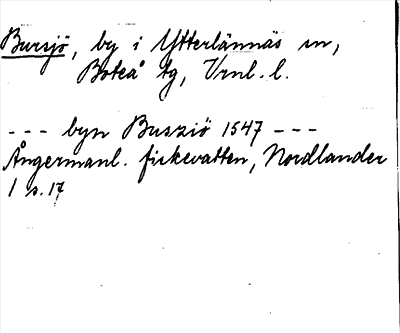 Bursjö, by i Ytterlännäs sn,
Boteå tg, Vrnl. l.
--- byn Busziö 1547 ---
Ångermanl. fiskevatten, Nordlander
1 s. 17